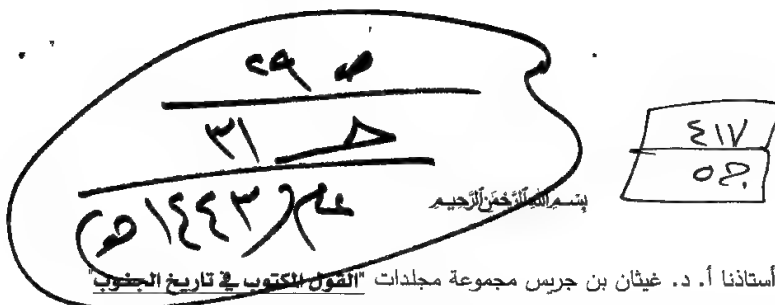 ص ٢٩
ج ٣١
عام (١٤٤٣هـ)
٤١٧
ج ٥
بسم الله الرحمن الرحيم
أستاذنا أ. د. غيثان بن جريس مجموعة مجلدات "القول المكتوب في تاريخ الجنوب"